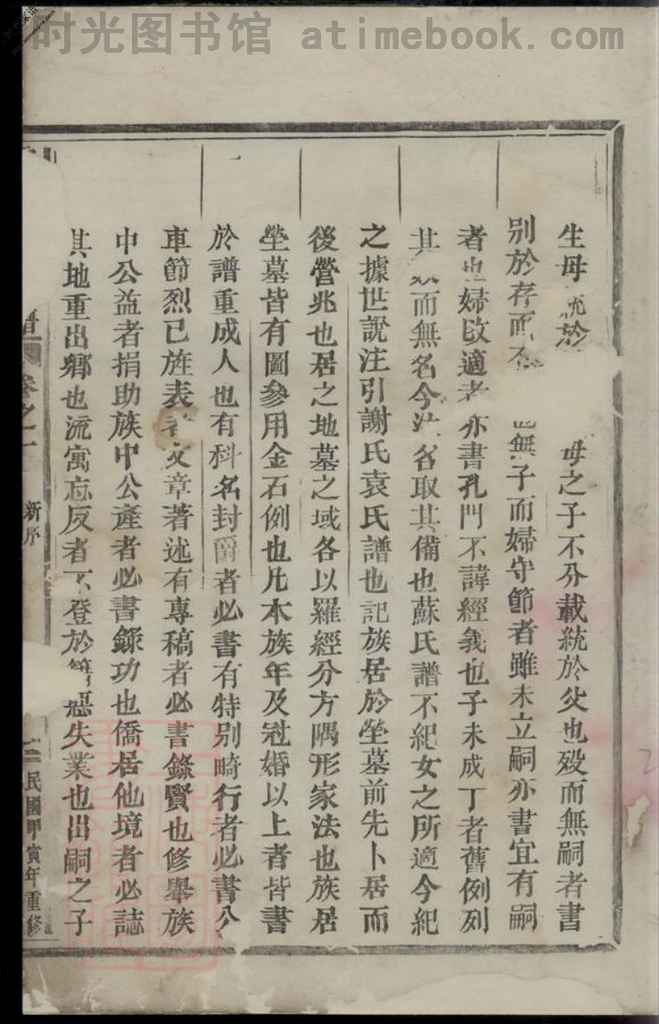 时光图书馆 atimebook.com
生母 於 母之子不分載統於父也歿而無嗣者書
別於存而不 無子而婦守節者雖未立嗣亦書宜有嗣
者也婦改適者亦書孔門不諱經義也子未成丁者舊例列
其 而無名今 名取其備也蘇氏譜不紀女之所適今紀
之據世說注引謝氏袁氏譜也記族居於塋墓前先卜居而
後營兆也居之地墓之域各以羅經分方隅形家法也族居
塋墓皆有圖參用金石例也凡本族年及冠婚以上者皆書
於譜重成人也有科名封爵者必書有特別畸行者必書公
車節烈已旌表者文章著述有專稿者必書錄賢也修舉族
中公益者捐助族中公產者必書錄功也僑居他境者必誌
其地重出鄉也流寓忘反者不登於 惡失業也出嗣之子
卷之一 新序
民國甲寅年重修